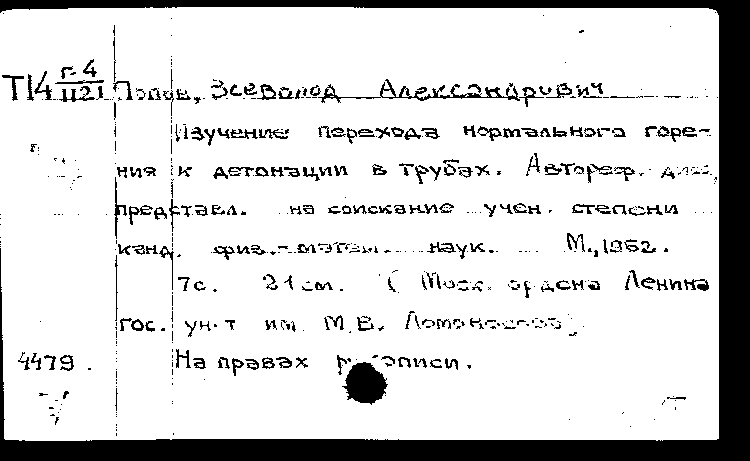 Т14 г-4/1121 Попов, Всеволод Александрович
Изучение перехода нормального горе-
ния к детонации в трубах. Автореф. дисс,
представл. на соискание учен. степени
канд. физ.-матем. наук. М., 1952.
7с. 21см. (Моск. ордена Ленина
гос. ун-т им. М.В. Ломоносова).
4479. На правах рукописи.